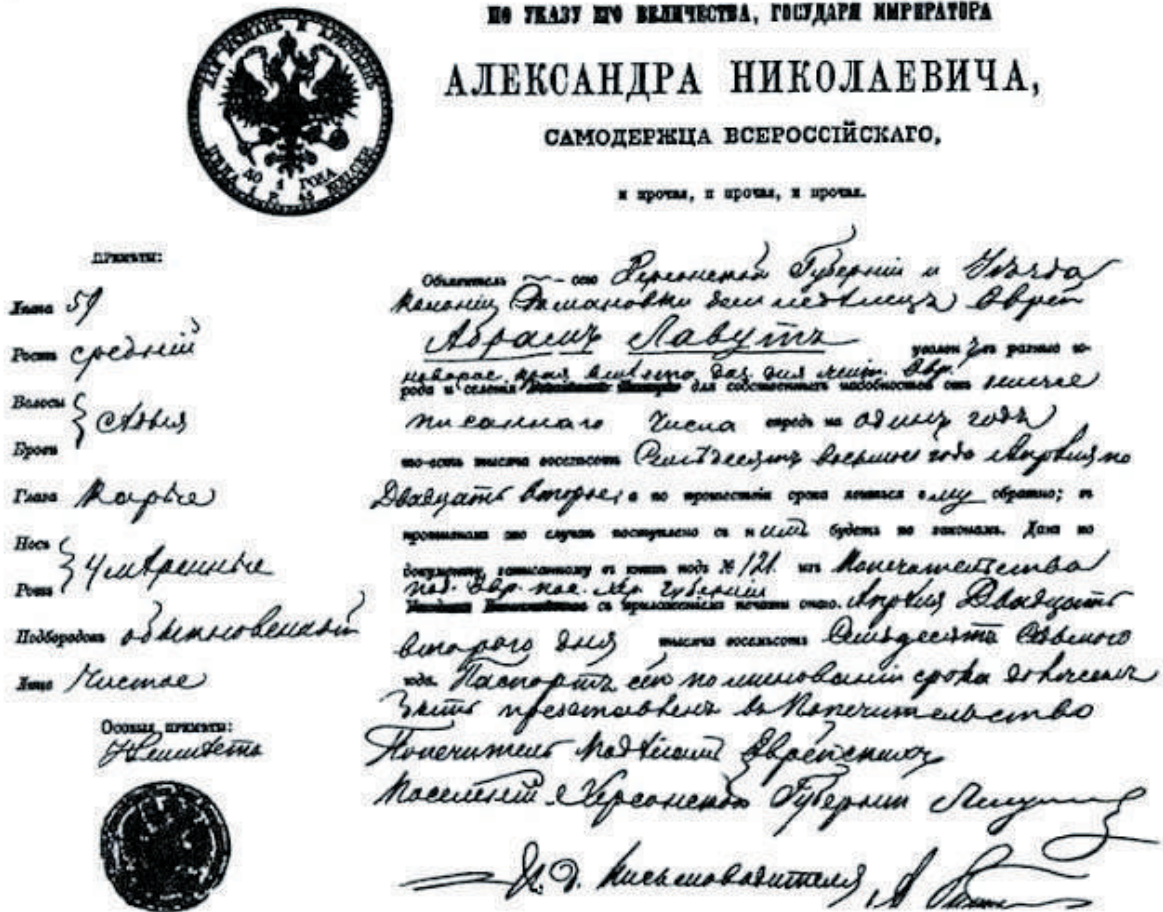 ПО УКАЗУ ЕГО ВЕЛИЧЕСТВА, ГОСУДАРЯ ИМПЕРАТОРА
АЛЕКСАНДРА НИКОЛАЕВИЧА,
САМОДЕРЖЦА ВСЕРОССІЙСКАГО,
и прочая, и прочая, и прочая.
ДЛЯ МѢЩАНЪ И КРЕСТЬЯНЪ
НА 1 ГОДА
ЦѢНА 1 Р. 45 КОПѢЕКЪ
ПРИМѢТЫ:
Лѣта 59
Ростъ средній
Волосы
Брови
сѣдыя
Глаза Карые
Носъ
Ротъ
умѣренные
Подбородокъ обыкновенный
Лице Чистое
Особыя примѣты:
Объявитель сего Херсонской Губерніи и Уѣзда
Колоніи Романовки земледѣлецъ Еврей
Абрамъ Лавутъ
уволенъ въ разные го-
рода и селенія для собственныхъ надобностей отъ ниже
писаннаго Числа впредь на одинъ годъ
то-есть тысяча восемьсотъ Семьдесятъ восьмого года Апрѣля по
Двадцать второе, а по прошествіи срока явиться ему обратно; въ
противномъ же случаѣ поступлено съ нимъ будетъ по законамъ. Данъ по
документу, записанному въ книгѣ подъ № 121. изъ Попечительства
над. Евр. пос. Хер. Губерніи
съ приложеніемъ печати онаго. Апрѣля Двадцать
второго дня тысяча восемьсотъ Семьдесятъ Седьмого
года. Паспортъ сей по миновании срока долженъ
быть представленъ въ Попечительство
Попечитель надъ Еврейскихъ
Поселеній Херсонской Губерніи
И. Д. Письмоводителя